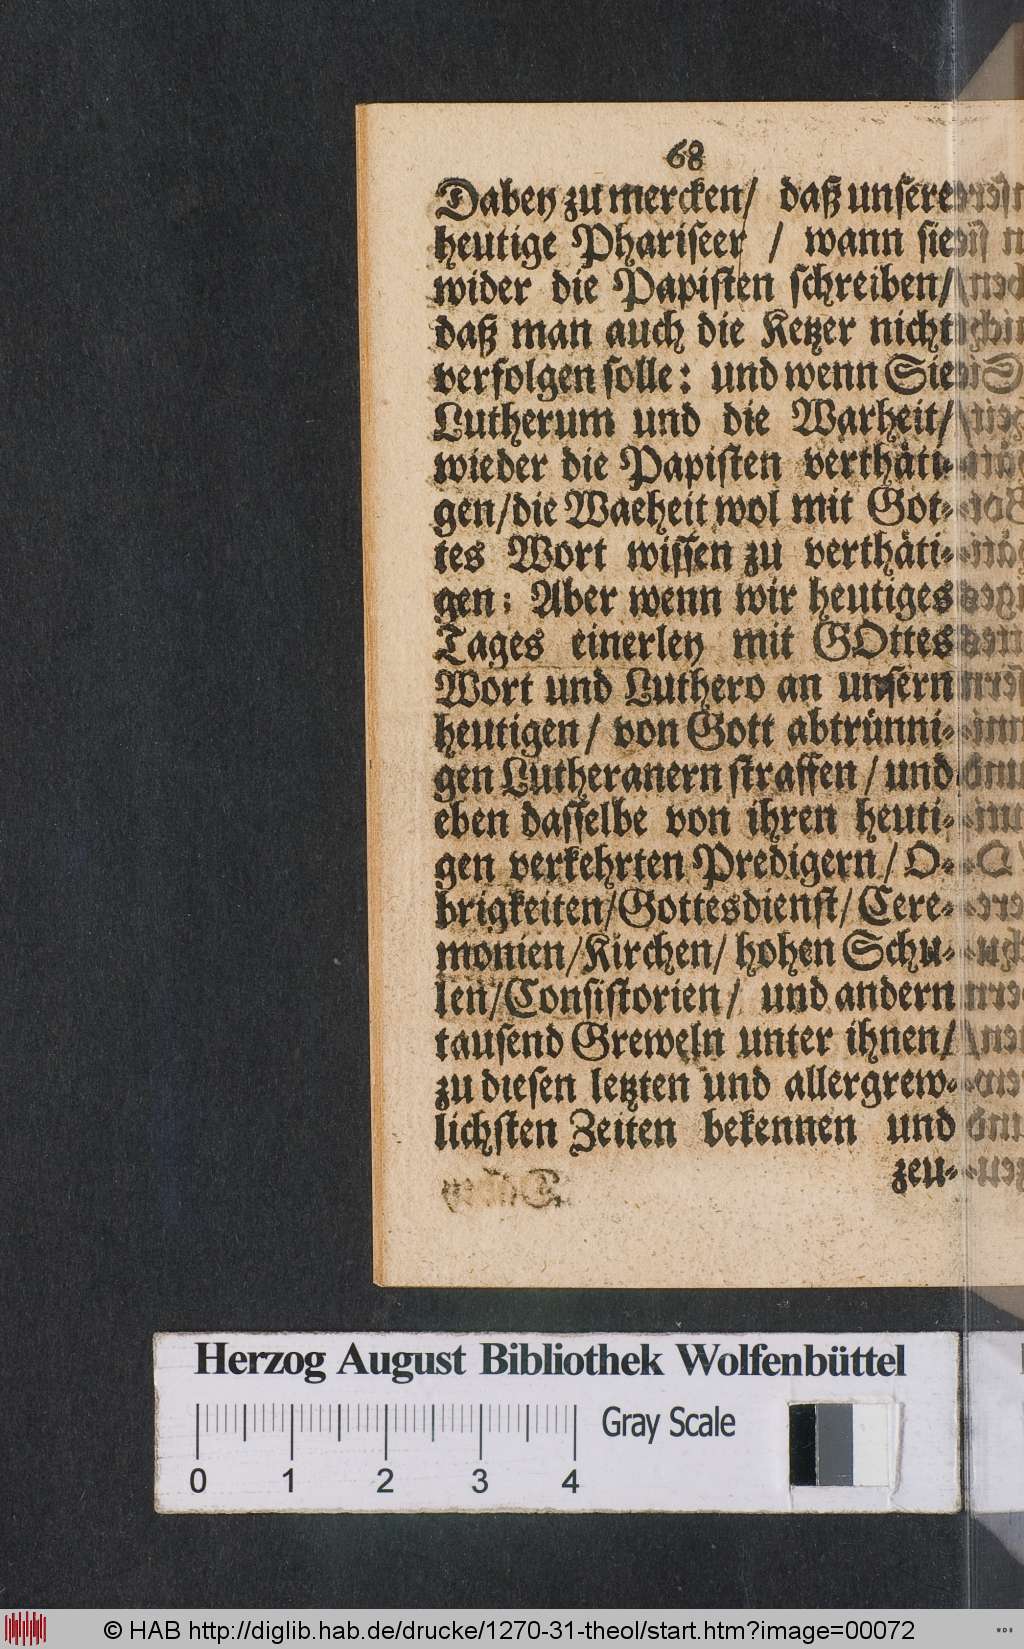 68
Dabey zu mercken/ daß unsere
heutige Phariseer / wann sie
wider die Papisten schreiben/
daß man auch die Ketzer nicht
verfolgen solle: und wenn Sie
Lutherum und die Warheit/
wieder die Papisten verthäti-
gen/die Waeheit wol mit Got-
tes Wort wissen zu verthäti-
gen: Aber wenn wir heutiges
Tages einerley mit GOttes
Wort und Luthero an unsern
heutigen/ von Gott abtrünni-
gen Lutheranern straffen / und
eben dasselbe von ihren heuti-
gen verkehrten Predigern/ O-
brigkeiten/Gottesdienst/ Cere-
monien/Kirchen/ hohen Schu-
len/Consistorien/ und andern
tausend Greweln unter ihnen/
zu diesen letzten und allergrew-
lichsten Zeiten bekennen und
zeu-
Herzog August Bibliothek Wolfenbüttel
Gray Scale
0 1 2 3 4
© HAB http://diglib.hab.de/drucke/1270-31-theol/start.htm?image=00072